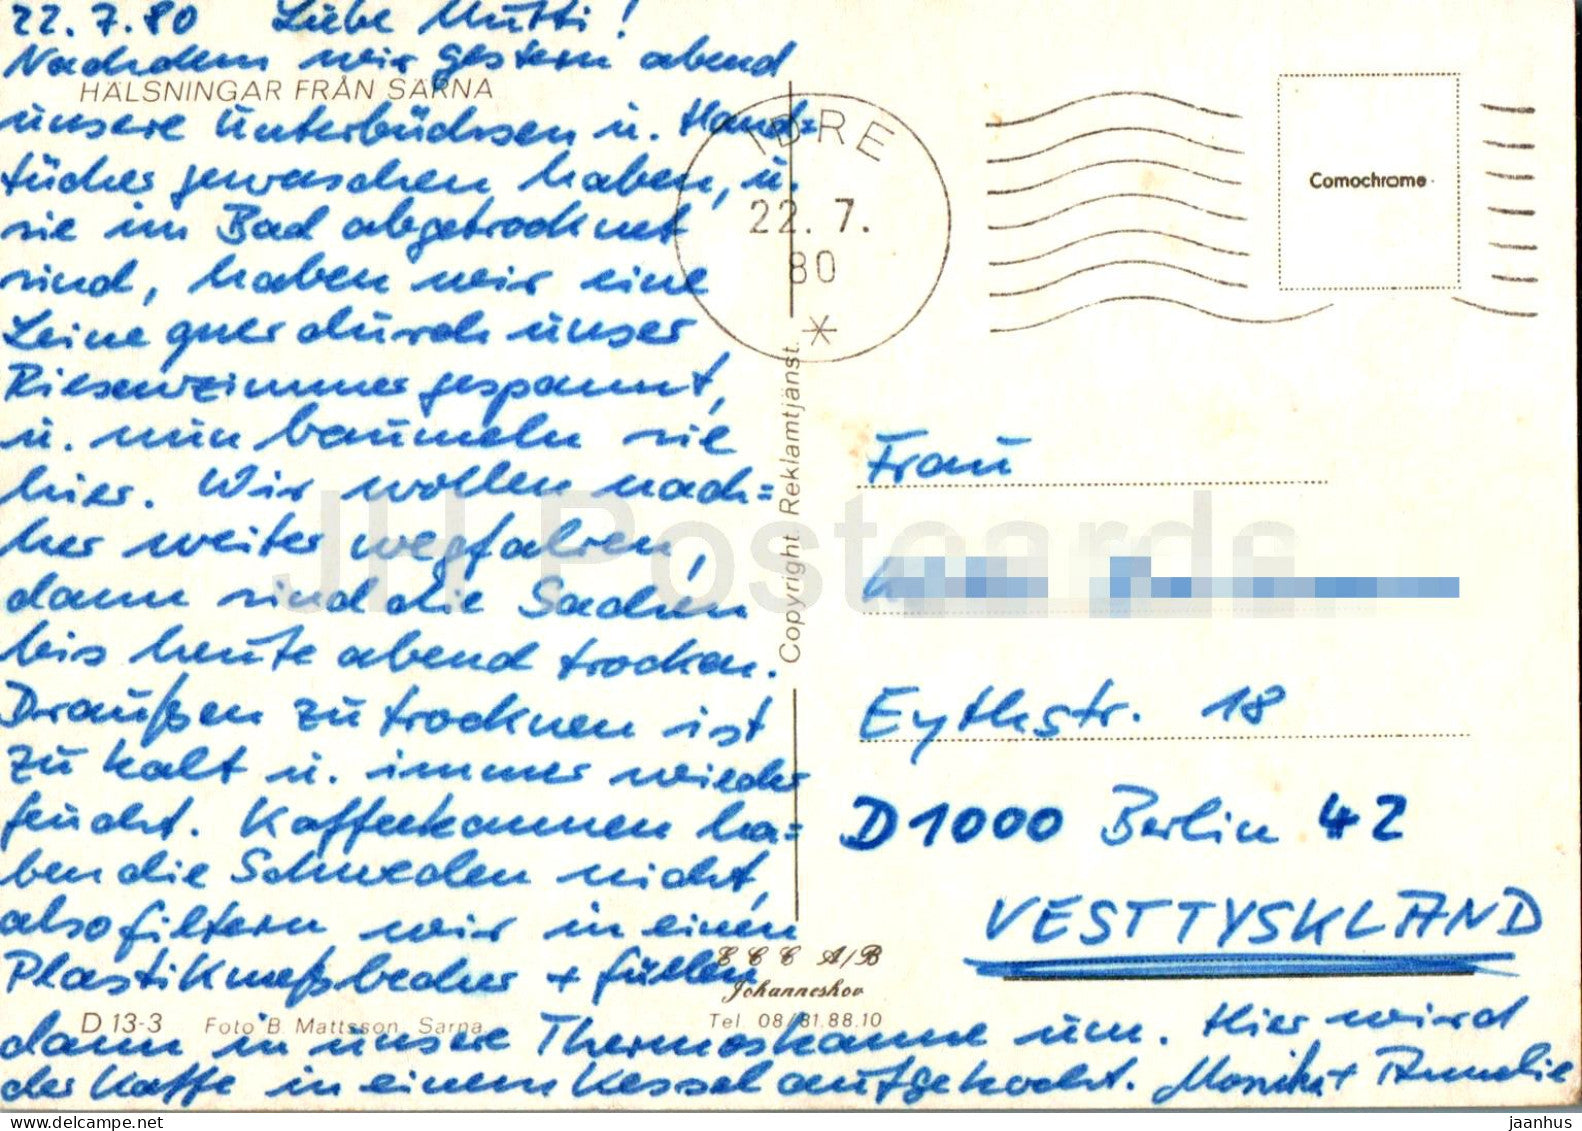 22.7.80 Liebe Mutti!
Nachdem wir gestern abend
HÄLSNINGAR FRÅN SÄRNA
unsere Unterbüchsen u. Hand=
tücher gewaschen haben, u.
sie im Bad abgetrocknet
sind, haben wir eine
Leine quer durch unser
Riesenzimmer gespannt,
u. nun baumeln sie
hier. Wir wollen nach=
her weiter wegfahren,
dann sind die Sachen
bis heute abend trocken.
Draußen zu trocknen ist
zu kalt u. immer wieder
feucht. Kaffeekannen ha=
ben die Schweden nicht,
also filtern wir in einen
Plastikmeßbecher + füllen
D 13-3 Foto B. Mattsson, Särna
dann in unsere Thermoskanne um. Hier wird
der Kaffe in einem Kessel aufgekocht. Monika +
IDRE
22.7.
80
Comochrome
Copyright Reklamtjänst.
Frau
Eythstr. 18
D 1000 Berlin 42
VESTTYSKLAND
C C C A/B
Johanneshov
Tel 08/81.88.10
JH Postcards
www.delcampe.net
jaanhus